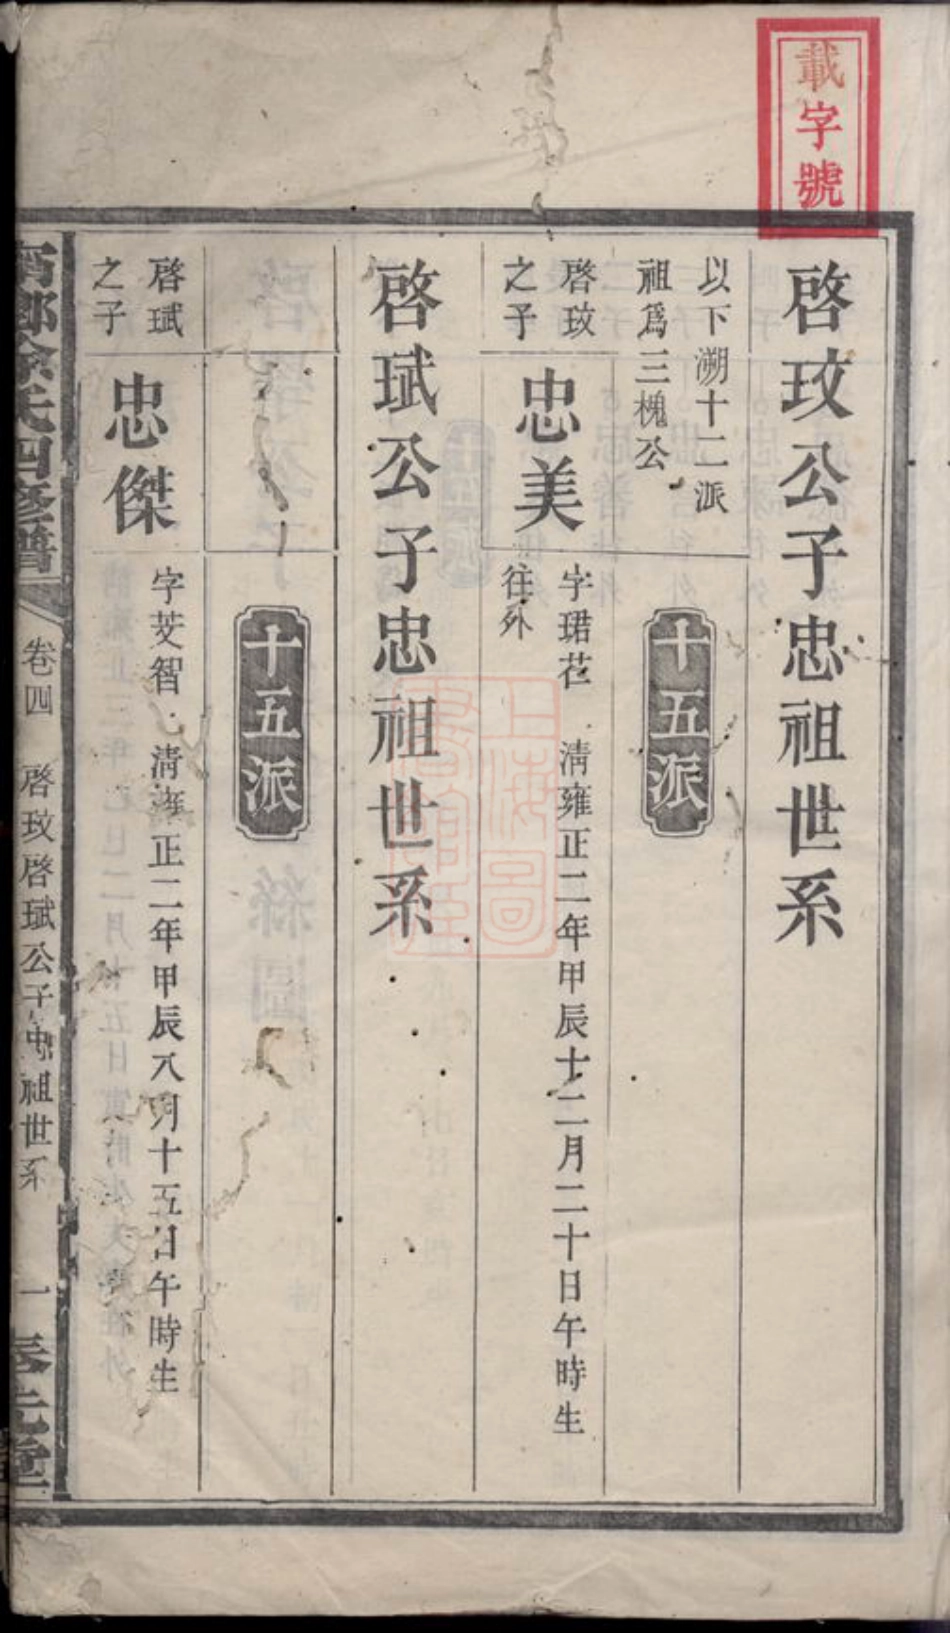 載字號
啓玟公子忠祖世系
以下溯十二派
祖爲三槐公
十五派
啓玟
之子
忠美
字珺荘 淸雍正二年甲辰十二月二十日午時生
往外
啓珷公子忠祖世系
十五派
啓珷
之子
忠傑
字芠智 淸雍正二年甲辰八月十五日午時生
氏四修譜
卷四 啓玟啓珷公子忠祖世系
一
堂
上海圖
書館藏